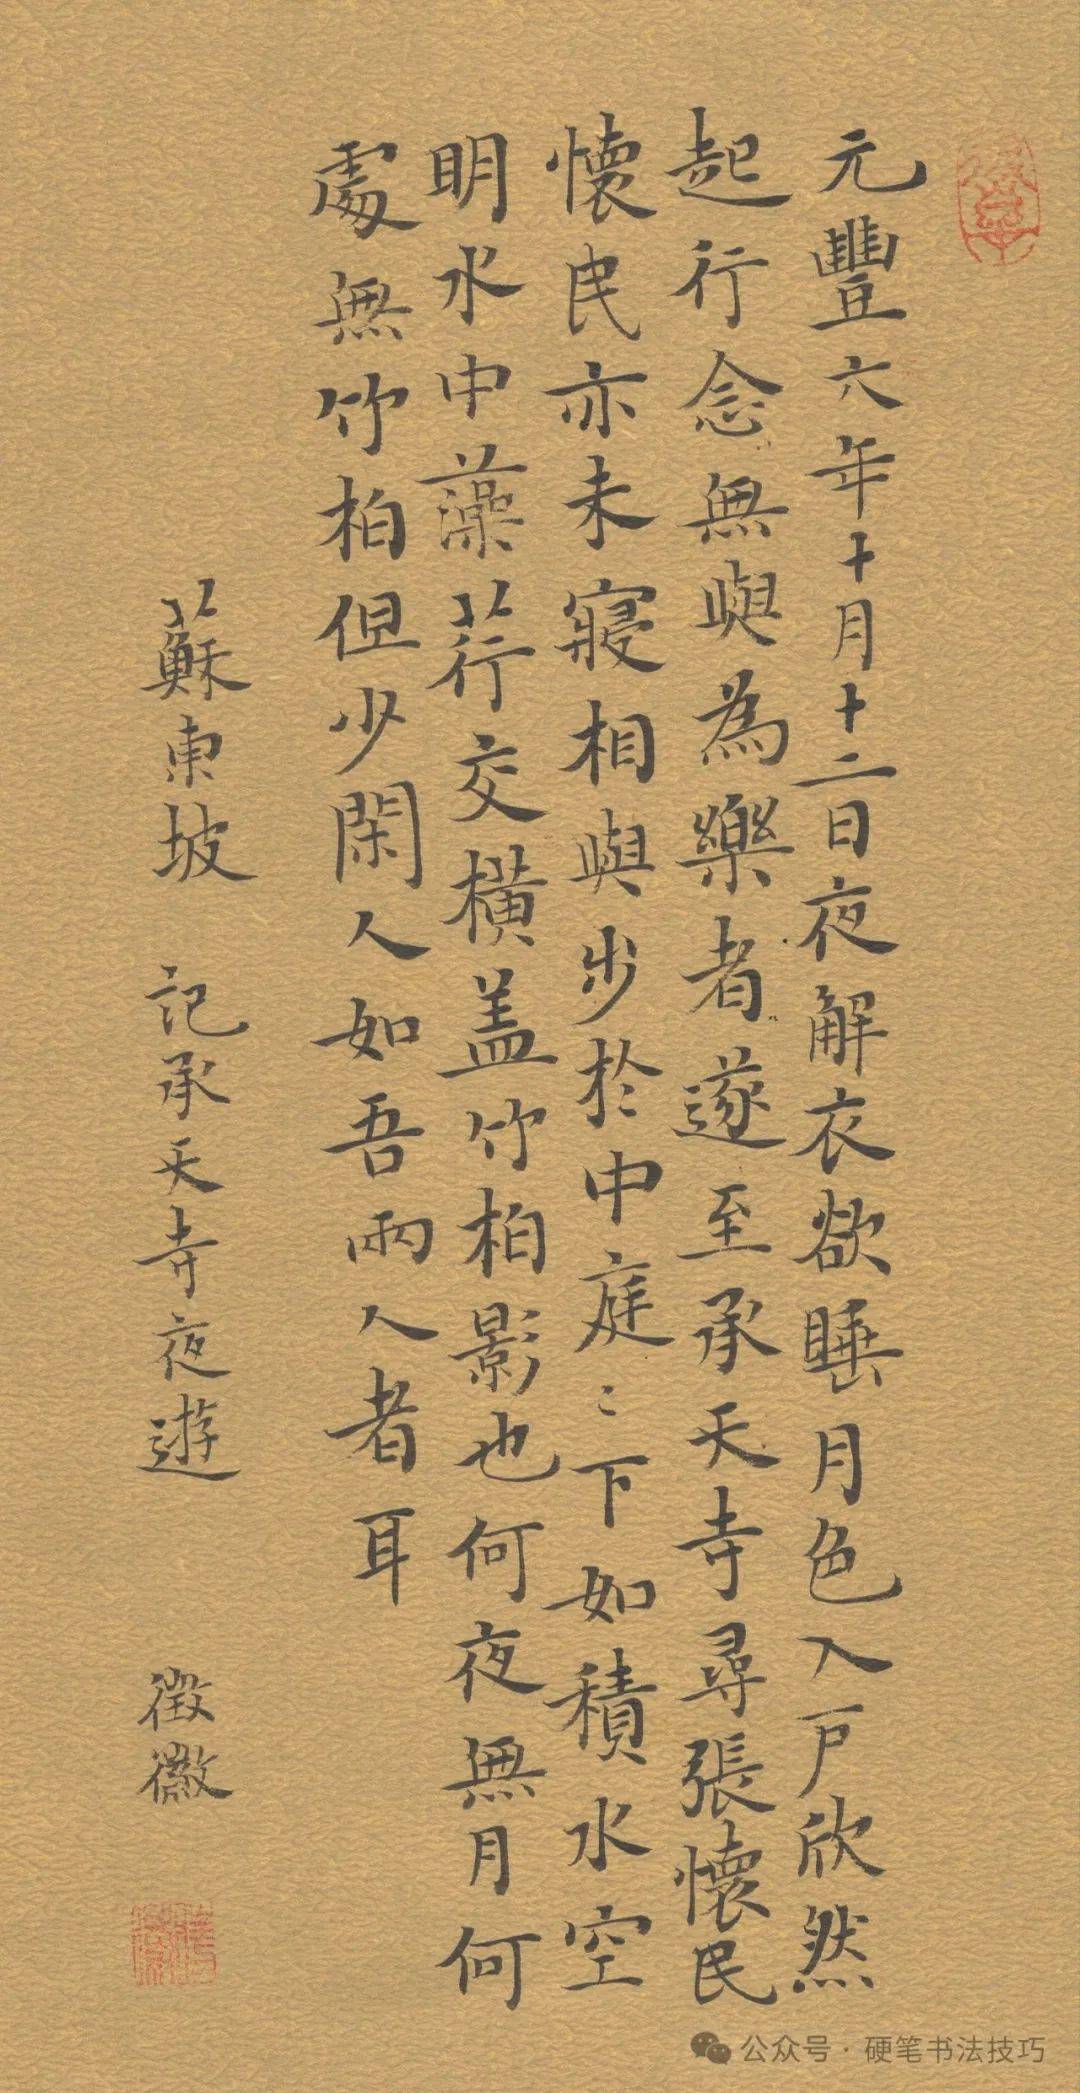 元豐六年十月十二日夜解衣欲睡月色入戶欣然
起行念無與為樂者遂至承天寺尋張懷民
懷民亦未寢相與步於中庭〻下如積水空
明水中藻荇交橫盖竹柏影也何夜無月何
處無竹柏但少閑人如吾兩人者耳
蘇東坡 記承天寺夜遊 徵徽
公众号·硬笔书法技巧